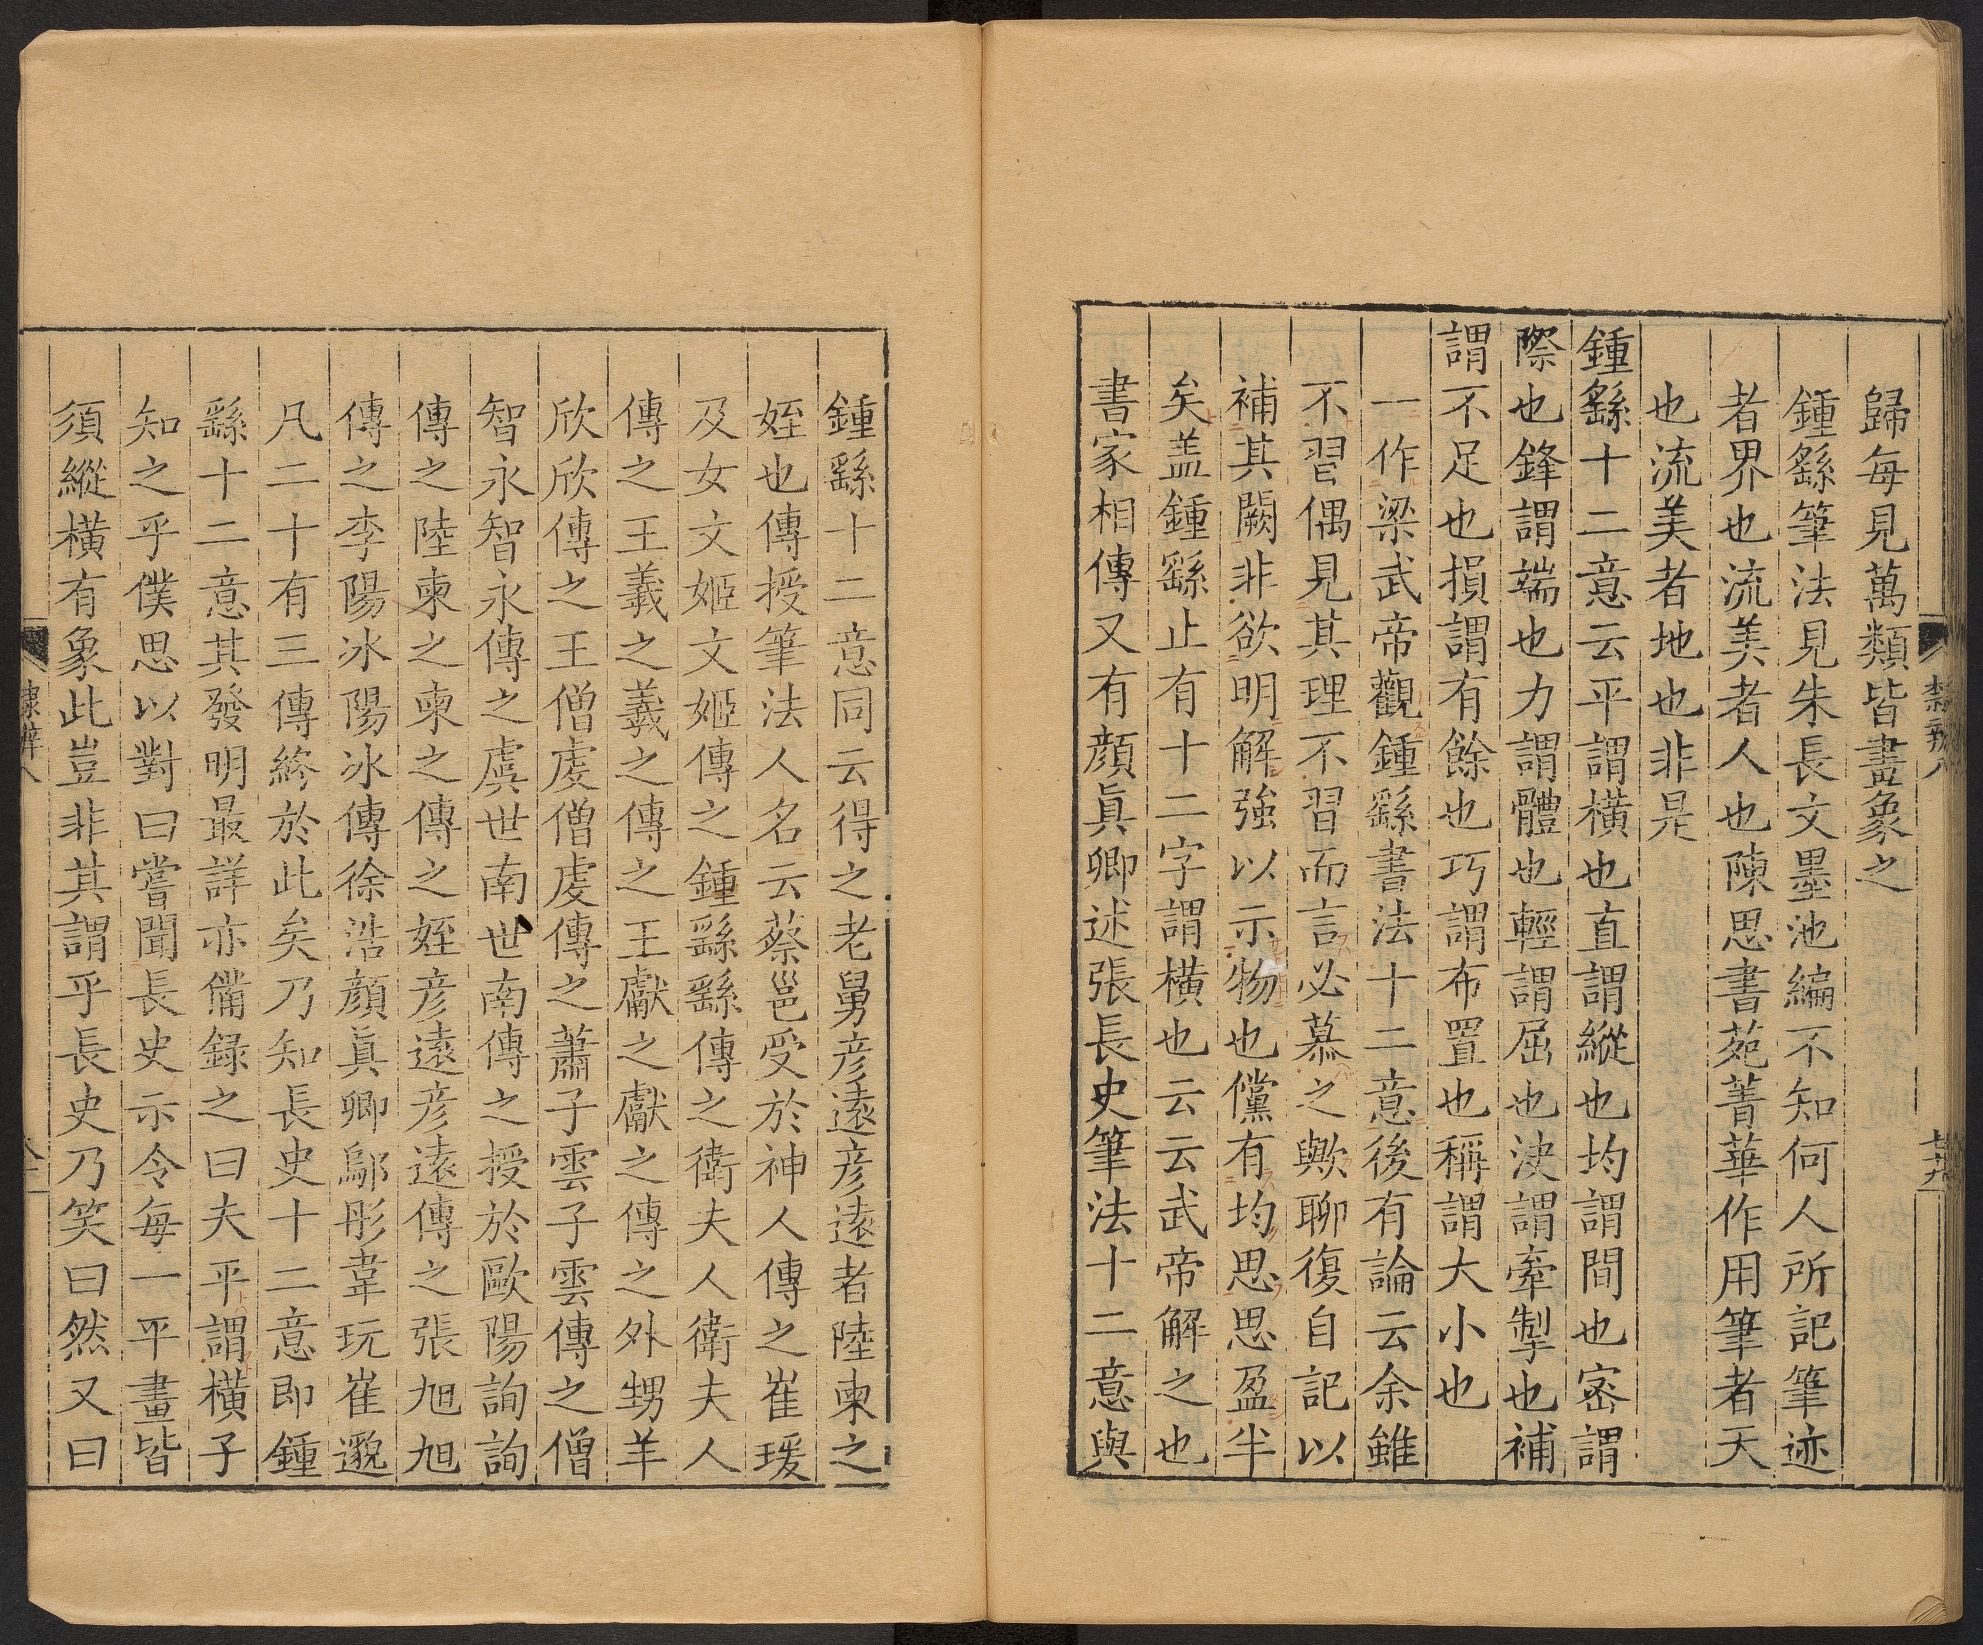 歸每見萬類皆畫象之
鍾繇筆法見朱長文墨池編不知何人所記筆迹
者界也流美者人也陳思書苑菁華作用筆者天
也流美者地也非是
鍾繇十二意云平謂橫也直謂縱也均謂間也密謂
際也鋒謂端也力謂體也輕謂屈也決謂牽掣也補
謂不足也損謂有餘也巧謂布置也稱謂大小也
一作梁武帝觀鍾繇書法十二意後有論云余雖
不習偶見其理不習而言必慕之歟聊復自記以
補其闕非欲明解強以示物也儻有均思思盈半
矣盖鍾繇止有十二字謂橫也云云武帝解之也
書家相傳又有顔眞卿述張長史筆法十二意與
鍾繇十二意同云得之老舅彦遠彦遠者陸柬之
姪也傳授筆法人名云蔡邕受於神人傳之崔瑗
及女文姬文姬傳之鍾繇繇傳之衛夫人衛夫人
傳之王羲之羲之傳之王獻之獻之傳之外甥羊
欣欣傳之王僧虔僧虔傳之蕭子雲子雲傳之僧
智永智永傳之虞世南世南傳之授於歐陽詢詢
傳之陸柬之柬之傳之姪彦遠彦遠傳之張旭旭
傳之李陽冰陽冰傳徐浩顔眞卿鄔彤韋玩崔邈
凡二十有三傳終於此矣乃知長史十二意即鍾
繇十二意其發明最詳亦備録之曰夫平謂橫子
知之乎僕思以對曰嘗聞長史示令每一平畫皆
須縱橫有象此豈非其謂乎長史乃笑曰然又曰